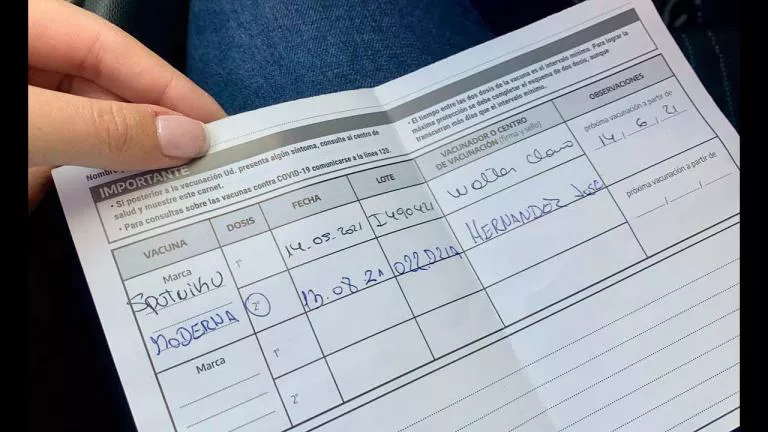 Nombre
IMPORTANTE
• Si posterior a la vacunación Ud. presenta algún síntoma, consulte al centro de
salud y muestre este carnet.
• Para consultas sobre las vacunas contra COVID-19 comunicarse a la línea 120.
• El tiempo entre las dos dosis de la vacuna es el intervalo mínimo. Para lograr la
máxima protección se debe completar el esquema de dos dosis, aunque
transcurran más días que el intervalo mínimo.
VACUNA DOSIS FECHA LOTE VACUNADOR O CENTRO DE VACUNACIÓN (firma y sello) OBSERVACIONES
Marca 1° 14.05.2021 I490421 próxima vacunación a partir de
14, 6, 21
MODERNA 2° 022D21A HERNANDEZ José próxima vacunación a partir de
Marca 1°
2°